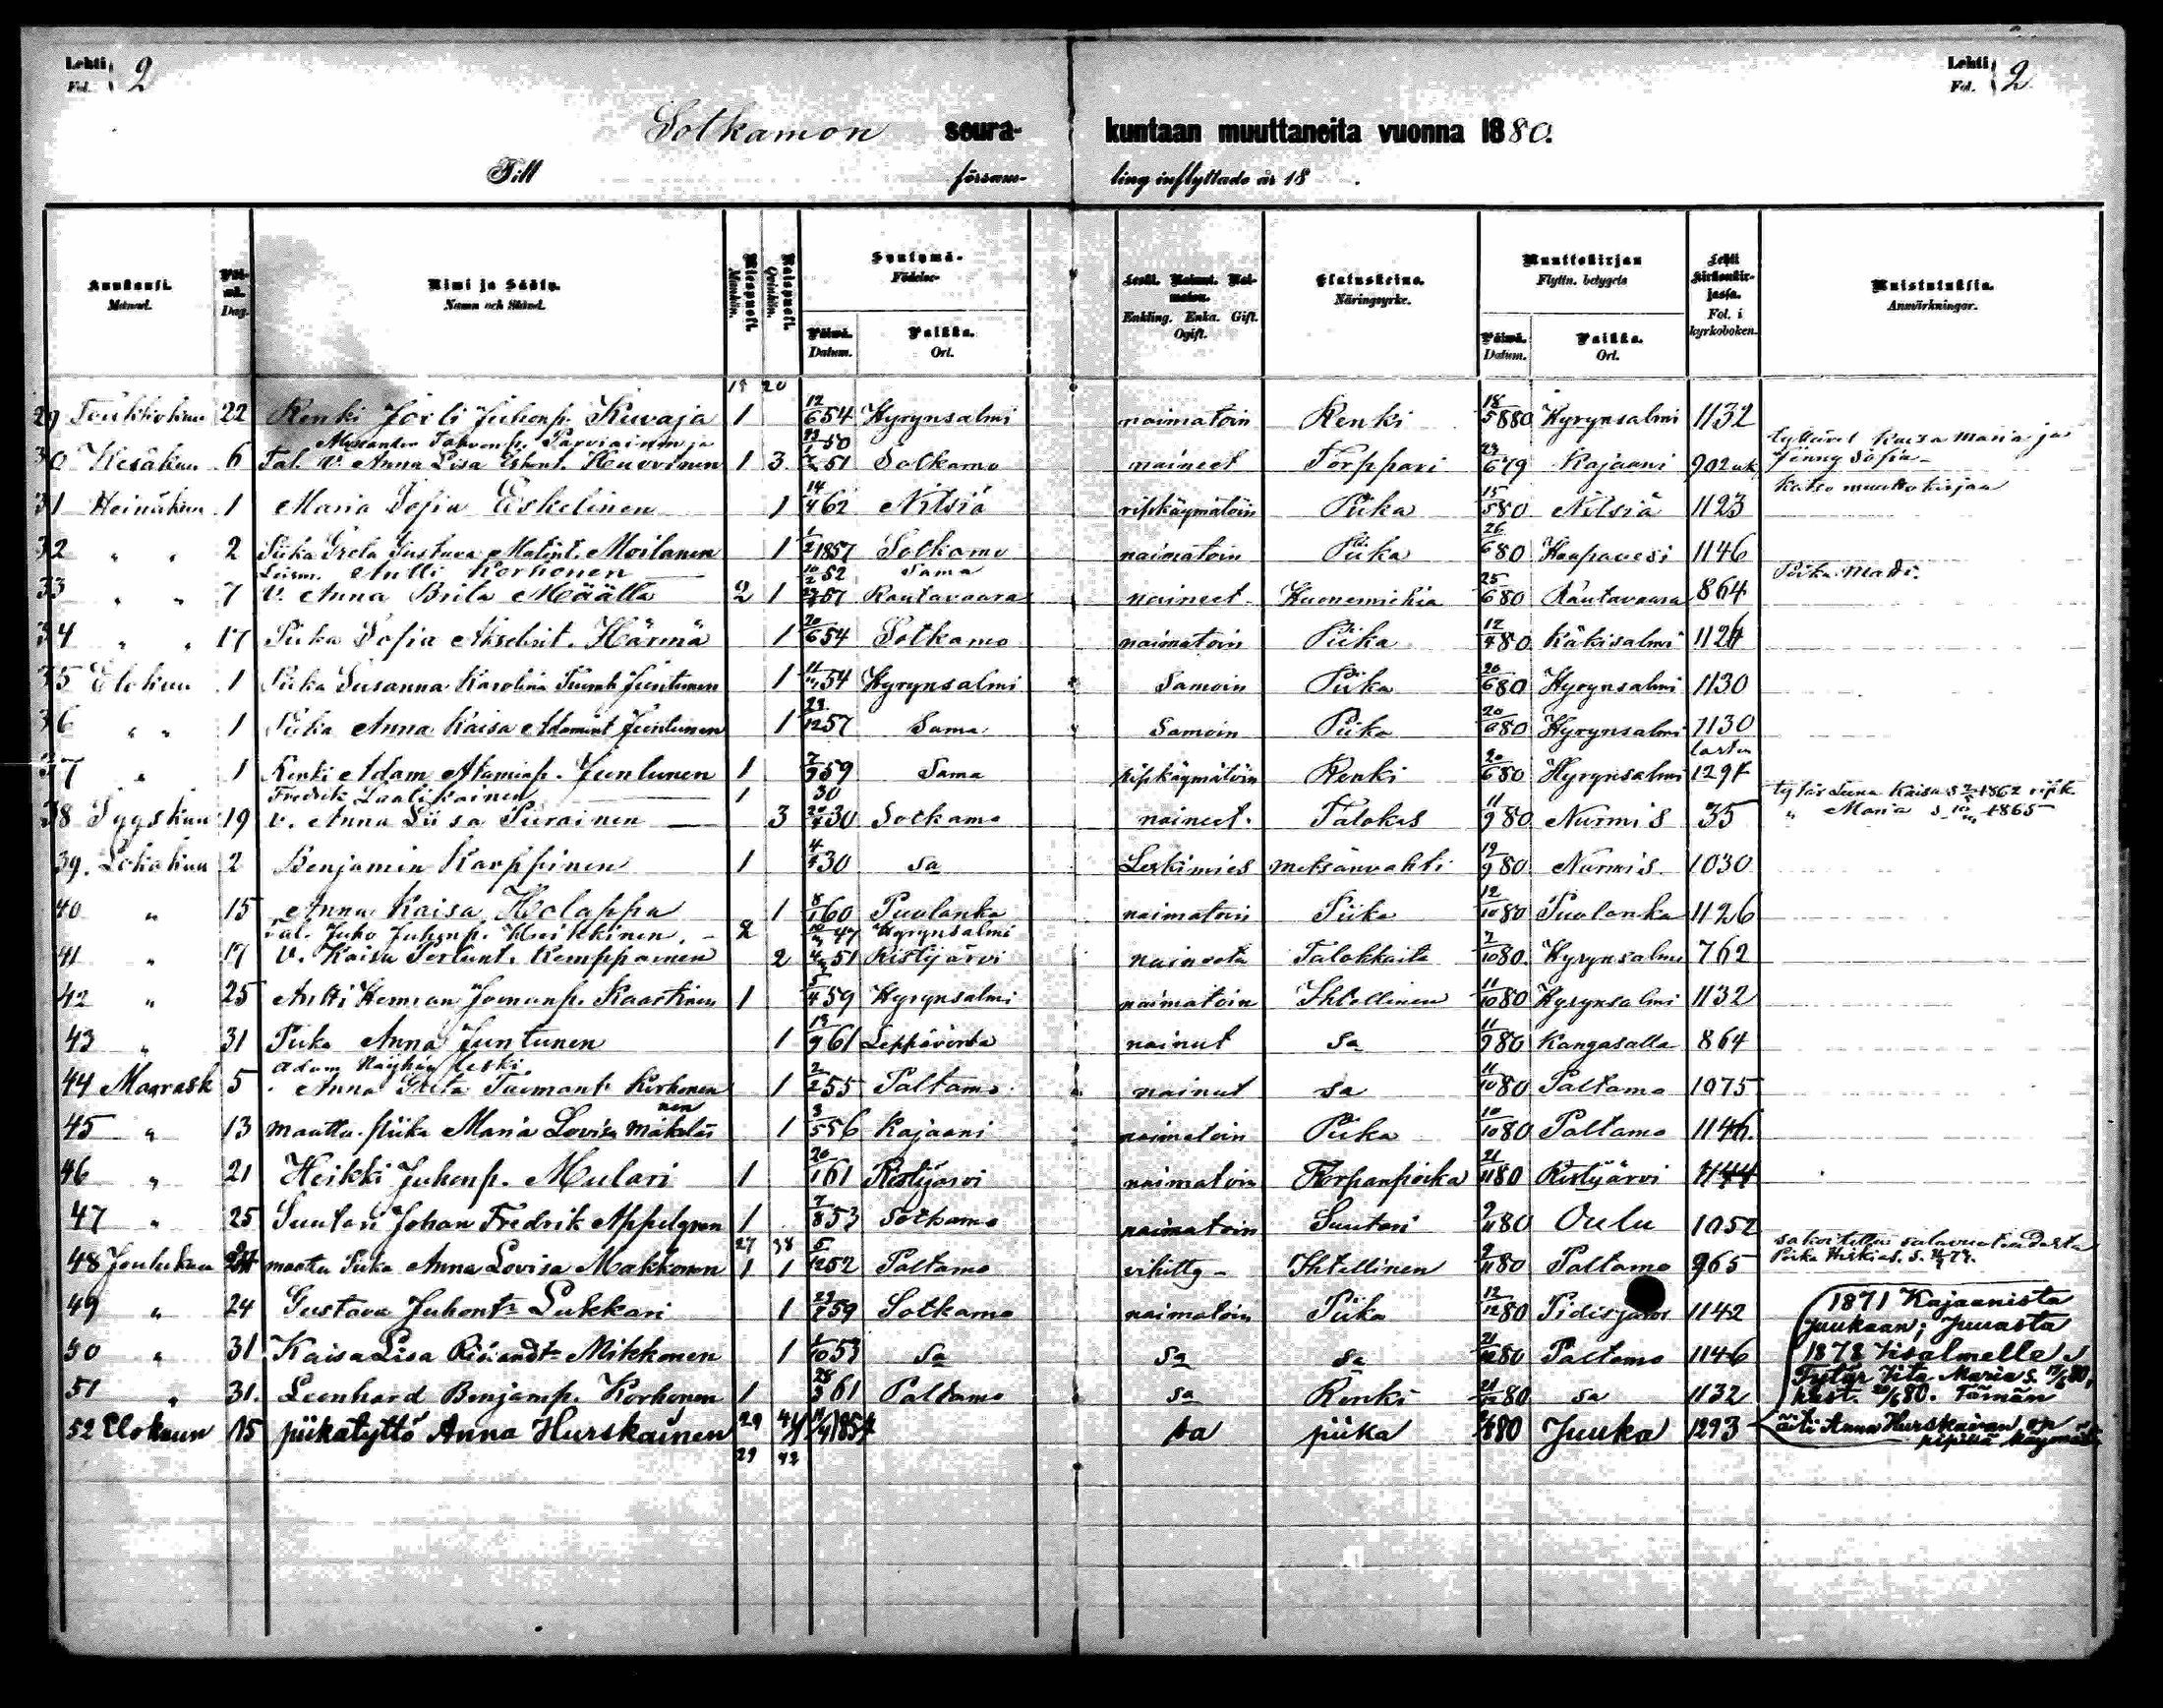 Lehti 2
Fol.
Lehti 2
Fol.
Sotkamon seura- kuntaan muuttaneita vuonna 1880.
Till försam- ling inflyttade år 18 .
Kuukausi. Månad.
Päivä. Dag.
Nimi ja Sääty. Namn och Stånd.
Miespuoli. Mankön.
Vaispuoli. Qvinkön.
Syntymä- Födelse-
Päivä. Datum.
Paikka. Ort.
Leski. Nainut. Naimaton. Enkling. Enka. Gift. Ogift.
Elatuskeino. Näringsyrke.
Muuttokirjan Flyttn. betygets
Päivä. Datum.
Paikka. Ort.
Lehti kirkonkirjassa. Fol. i kyrkoboken.
Muistutuksia. Anmärkningar.
18 20
29 Toukokuu 22 Renki Juhonp. Kuvaja 1 12/6 54 Hyrynsalmi naimatoin Renki 18/5 880 Hyrynsalmi 1132
Alexander Parviainen ja 50 tyttäret Kaisa Maria ja
30 Kesäkuu 6 Tal. v. Anna Lisa Huovinen 1 3 51 Sotkamo naineet Torppari 6 79 Kajaani 902 Jenny Sofia
31 Heinäkuu 1 Maria Sofia Eskelinen 1 14/4 62 Nilsiä ripkäymätöin Piika 15/5 80 Nilsiä 1123 katso muuttokirjaa
32 " " 2 Piika Greta Gustava Matint. Moilanen 1 1857 Sotkamo naimatoin Piika 26/6 80 Haapavesi 1146
Antti Korhonen 52 Sama Poika Matti.
33 " " 7 v. Anna Brita Määttä 2 1 57 Rautavaara naineet Huonemiehia 25/6 80 Rautavaara 864
34 " " 17 Piika Sofia Härmä 1 20/6 54 Sotkamo naimatoin Piika 12/4 80 Käkisalmi 1124
35 Elokuu 1 Piika Susanna Karolina Juntunen 1 54 Hyrynsalmi Samoin Piika 20/6 80 Hyrynsalmi 1130
36 " " 1 Piika Anna Kaisa Adamint Juntunen 1 12 57 Sama Samoin Piika 20/6 80 Hyrynsalmi 1130
37 " 1 Renki Adam Juntunen 1 7/9 59 Sama ripkäymätöin Renki 20/6 80 Hyrynsalmi lasten 1297
Fredrik 1 30
38 Syyskuu 19 v. Anna Liisa Piirainen 3 30 Sotkamo naineet. Talokas 11/9 80 Nurmis 35 " Maria 1865
39. Lokakuu 2 Benjamin Karppinen 1 30 sa Leskimies metsänvahti 12/9 80 Nurmis 1030
40 " 15 Anna Kaisa Holappa 1 8/1 60 Puolanka naimatoin Piika 12/10 80 Puolanka 1126
Tal. Juho Juhonp. Heikkinen. 2 47 Hyrynsalmi
41 " 17 v. Kaisa Kemppainen 2 51 Ristijärvi naineita Talokkaita 7/10 80 Hyrynsalmi 762
42 " 25 Antti Herman Kaartinen 1 4 59 Hyrynsalmi naimatoin Ihtellinen 11/10 80 Hyrynsalmi 1132
43 " 31 Piika Anna Juntunen 1 13/9 61 Leppävirta nainut sa 11/9 80 Kangasalla 864
Adam leski
44 Marrask 5 Anna Greta Korhonen 1 2/2 55 Paltamo nainut sa 11/10 80 Paltamo 1075
45 " 13 piika Maria Lovisa Mäkeläinen 1 3/5 56 Kajaani naimatoin Piika 10/10 80 Paltamo 1146.
46 " 21 Heikki Juhonp. Mulari 1 20/1 61 Ristijärvi naimatoin Torpanpoika 21/11 80 Ristijärvi 1144
47 " 25 Suutari Johan Fredrik Appelgren 1 7/8 53 Sotkamo naimatoin Suutari 9/11 80 Oulu 1052
27 38
48 Joulukuu Piika Anna Lovisa Makkonen 1 1 5/12 52 Paltamo vihitty Ihtellinen 9/11 80 Paltamo 965
49 " 24 Gustava Juhont. Lukkari 1 59 Sotkamo naimatoin Piika 12/12 80 1142
50 " 31 Kaisa Lisa Mikkonen 1 1/10 53 Sa Sa Sa 21/12 80 Paltamo 1146
51 " 31. Leonhard Benjamp. Korhonen 1 28/3 61 Paltamo sa Renki 21/12 80 sa 1132
52 Elokuun 15 piikatyttö Anna Hurskainen 29 1854 sa piika 80 Juuka 1293
29 42
1871 Kajaanista
Juukaan; Juuasta
1878 Iisalmelle
Tytär Maria s.
kast. 80. Tämän
äiti Anna Hurskainen on